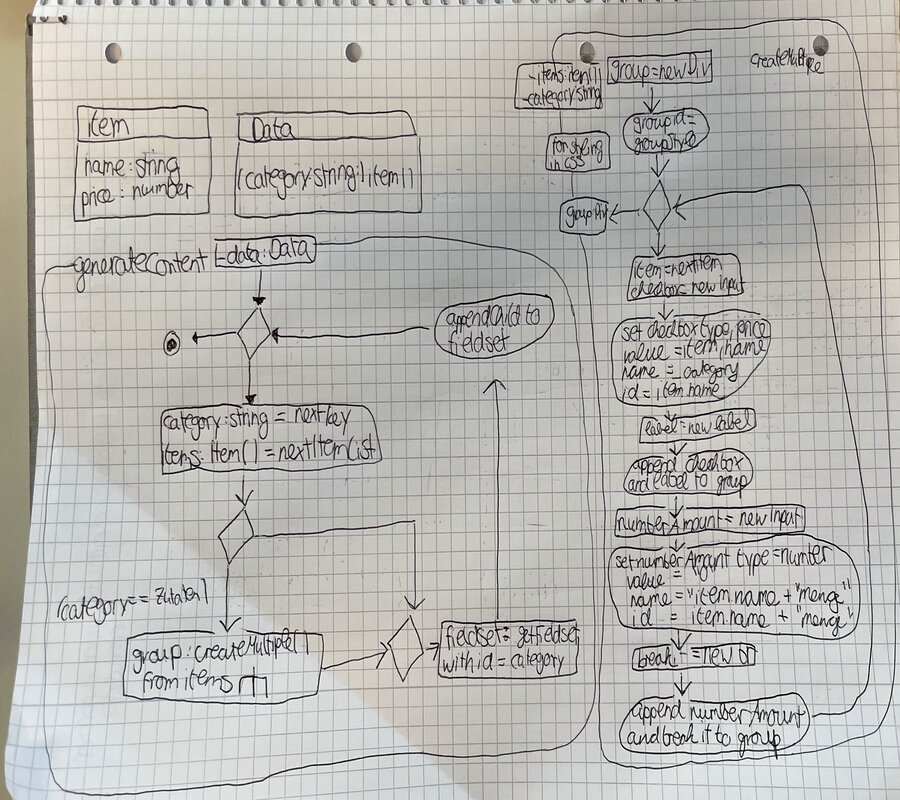 item
name: string
price: number
Data
[category: string]: item[]
generateContent
-data: Data
appendChild to
fieldset
category: string = next key
items: Item[] = next ItemList
[category == Zutaten]
group: createMultiple()
from items
fieldset = getfieldset
with id = category
createMultiple
-items: item[]
-category: string
group = new Div
group id =
group type
for styling
in CSS
group Div
item = next Item
checkbox: new Input
set checkbox type, price
value = item.name
name = category
id = item.name
label = new label
append checkbox
and label to group
number Amount = new Input
set number Amount type = number
value =
name = "item.name + "menge"
id = item.name + "menge"
break: = new br
append number Amount
and break it to group